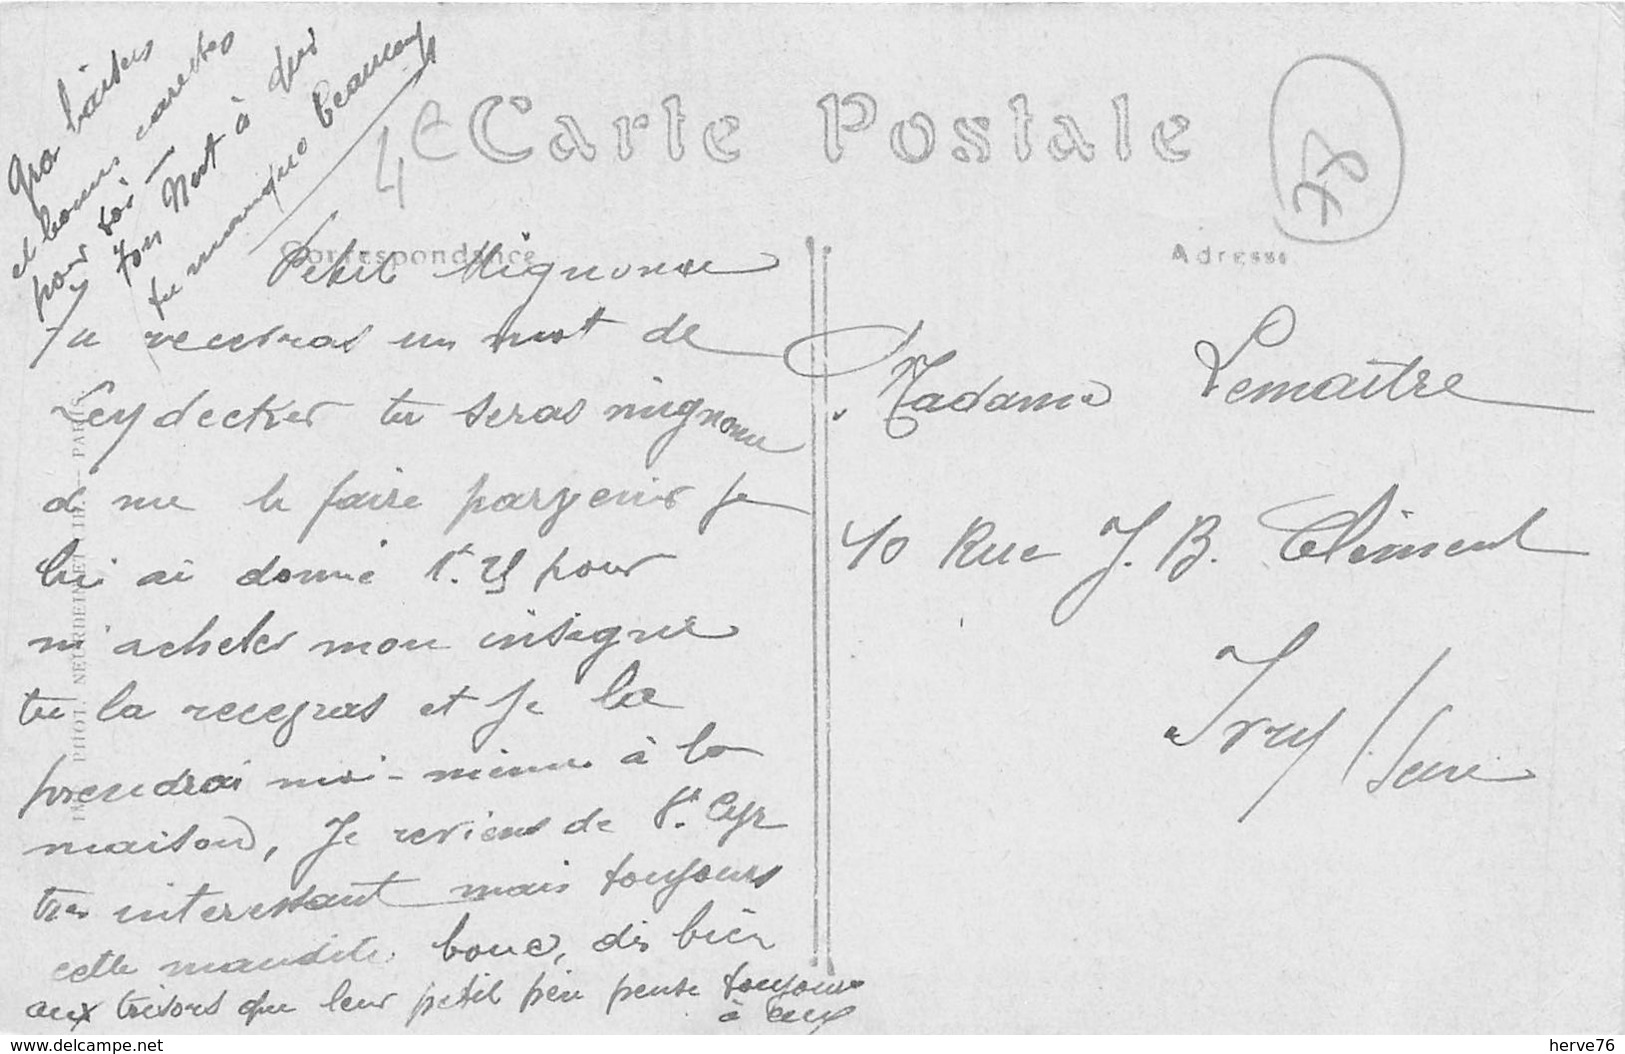 Carte Postale
Correspondance
Adresse
4e
Petite Mignonne
Tu recevras un mot de
Leydecker tu seras mignonne
de me le faire parvenir je
lui ai donné 1f. 25 pour
m'acheter mon insigne
tu la recevras et je la
prendrai moi-même à la
maison, Je reviens de St. Cyr
très interessant mais toujours
cette maudite boue, dis bien
aux trésors que leur petit père pense toujours
à eux
Gros baisers
et bonnes caresses
pour toi —
Ton Nest à qui
tu manques beaucoup
Madame Lemaitre
40 Rue J. B. Clément
Ivry / Seine
IMP. PHOT. NEURDEIN ET CIE. — PARIS
www.delcampe.net
herve76